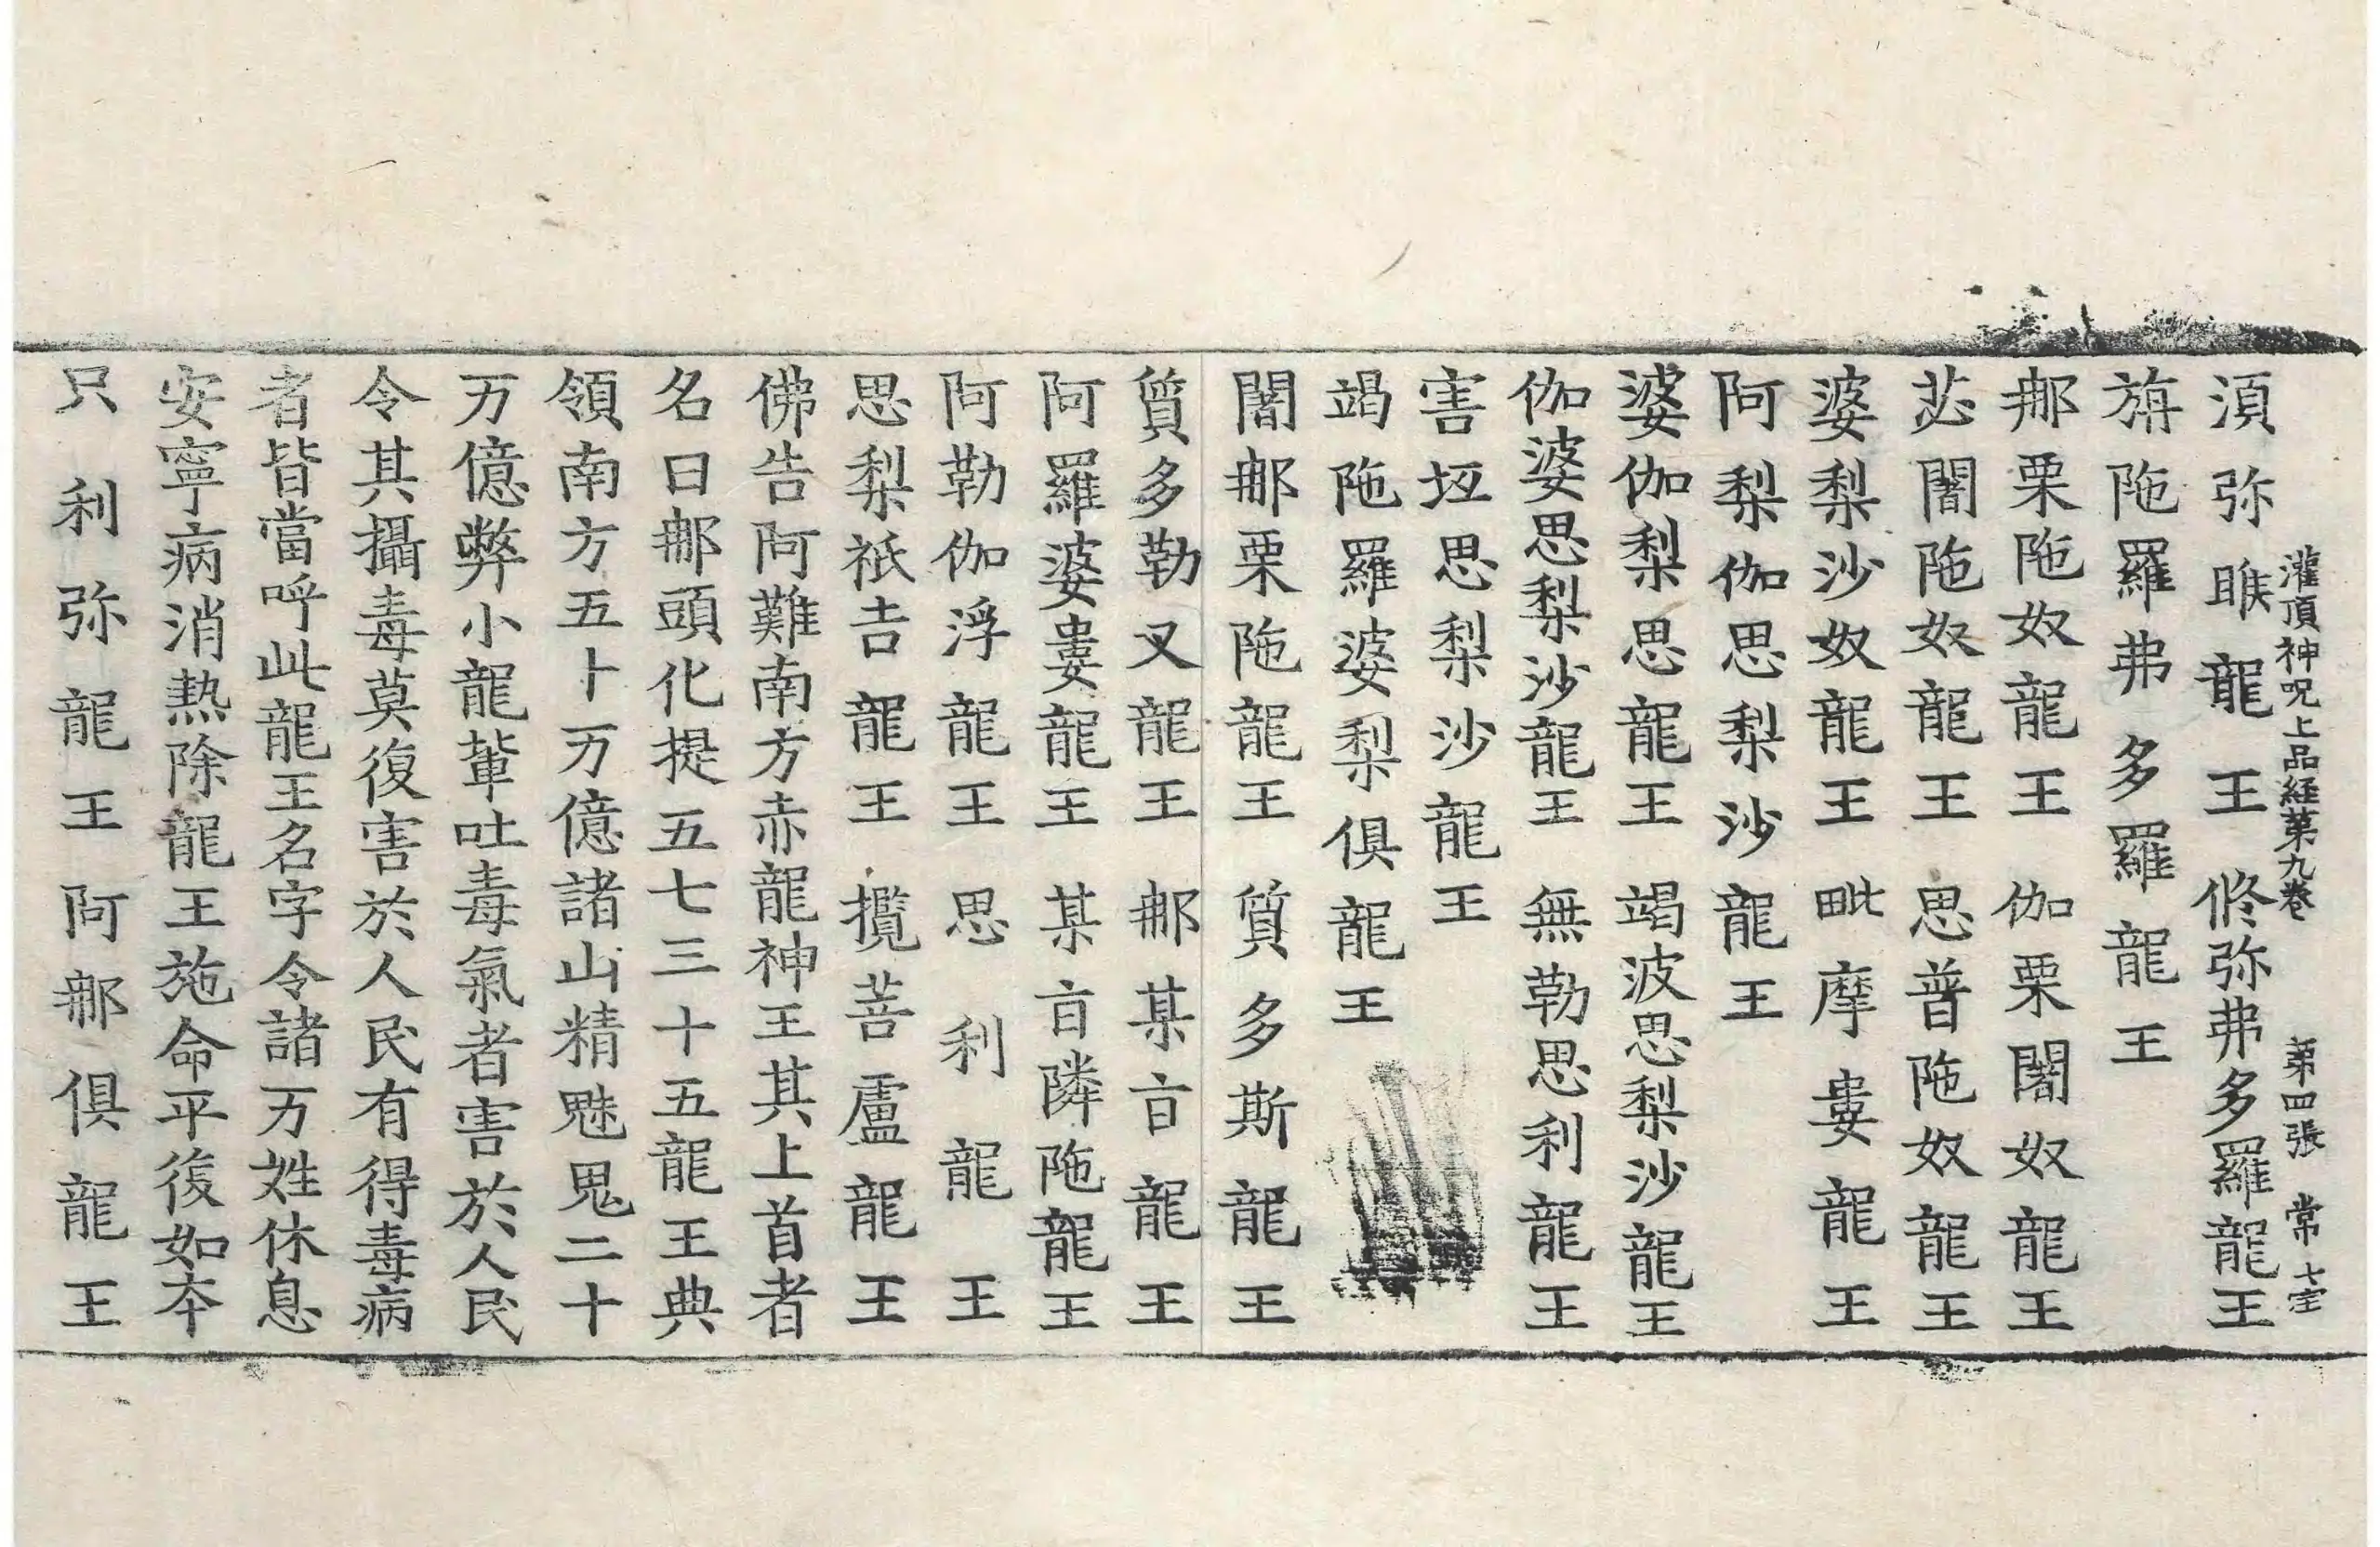 灌頂神呪上品経第九巻 第四張 常 七宝
湏弥睺龍王 修弥弗多羅龍王
旃陁羅弗多羅龍王
郍栗陁奴龍王 伽栗闍奴龍王
苾闍陁奴龍王 思普陁奴龍王
婆梨沙奴龍王 毗摩婁龍王
阿梨伽思梨沙龍王
婆伽梨思龍王 竭波思梨沙龍王
伽婆思梨沙龍王 無勒思利龍王
害㘴思梨沙龍王
竭陁羅婆梨俱龍王
闍郍栗陁龍王 質多斯龍王
質多勒叉龍王 郍某盲龍王
阿羅婆婁龍王 某盲隣陁龍王
阿勒伽浮龍王 思利龍王
思梨祇吉龍王 攬菩盧龍王
佛告阿難南方赤龍神王其上首者
名曰郍頭化提五七三十五龍王典
領南方五十万億諸山精魅鬼二十
万億弊小龍輩吐毒氣者害於人民
令其攝毒莫復害於人民有得毒病
者皆當呼此龍王名字令諸万姓休息
安寧病消熱除龍王施命平復如本
只利弥龍王阿郍俱龍王